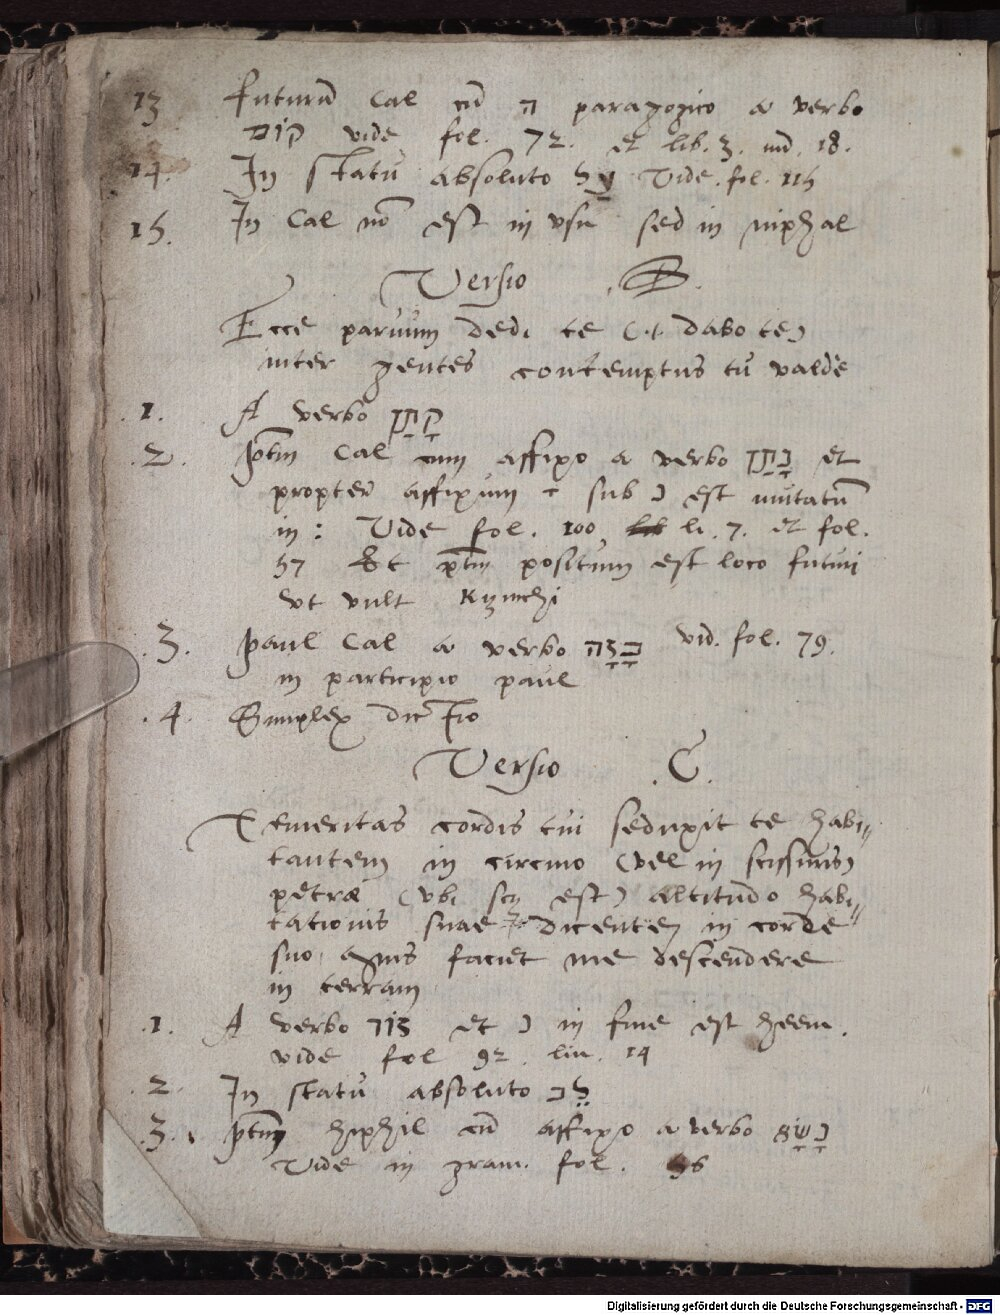 13 futurū Cal cū ה paragogico a verbo
קום vide fol. 72. et lib. 3. ind. 18.
14. In statu absoluto Vide fol. 115
15. In Cal nō est in usu sed in niphal
Versio B.
Ecce parvum dedi te (.i. dabo te)
inter gentes contemptus tu valde
1. A verbo קָטָן
2. ptm Cal cum affixo a verbo נָתַן et
propter affixum sub נ est mutatū
in : Vide fol. 100 li. 7. et fol.
57 Et ptm positum est loco futuri
ut vult Kymchi
3. paul Cal a verbo בָּזָה vid. fol. 79.
in participio paul
4. Simplex dictio
Versio C.
Temeritas cordis tui seduxit te habi〃
tantem in circino (vel in scissuris)
petræ (ubi scz est) altitudo habi〃
tationis suae dicentem in corde
suo, quis faciet me descendere
in terram
1. A verbo זוד et ן in fine est heem.
vide fol 92. lin. 14
2. In statu absoluto לֵב
3. ptm hiphil cū affixo a verbo נָשָׁא
Vide in gram. fol. 56
Digitalisierung gefördert durch die Deutsche Forschungsgemeinschaft - DFG